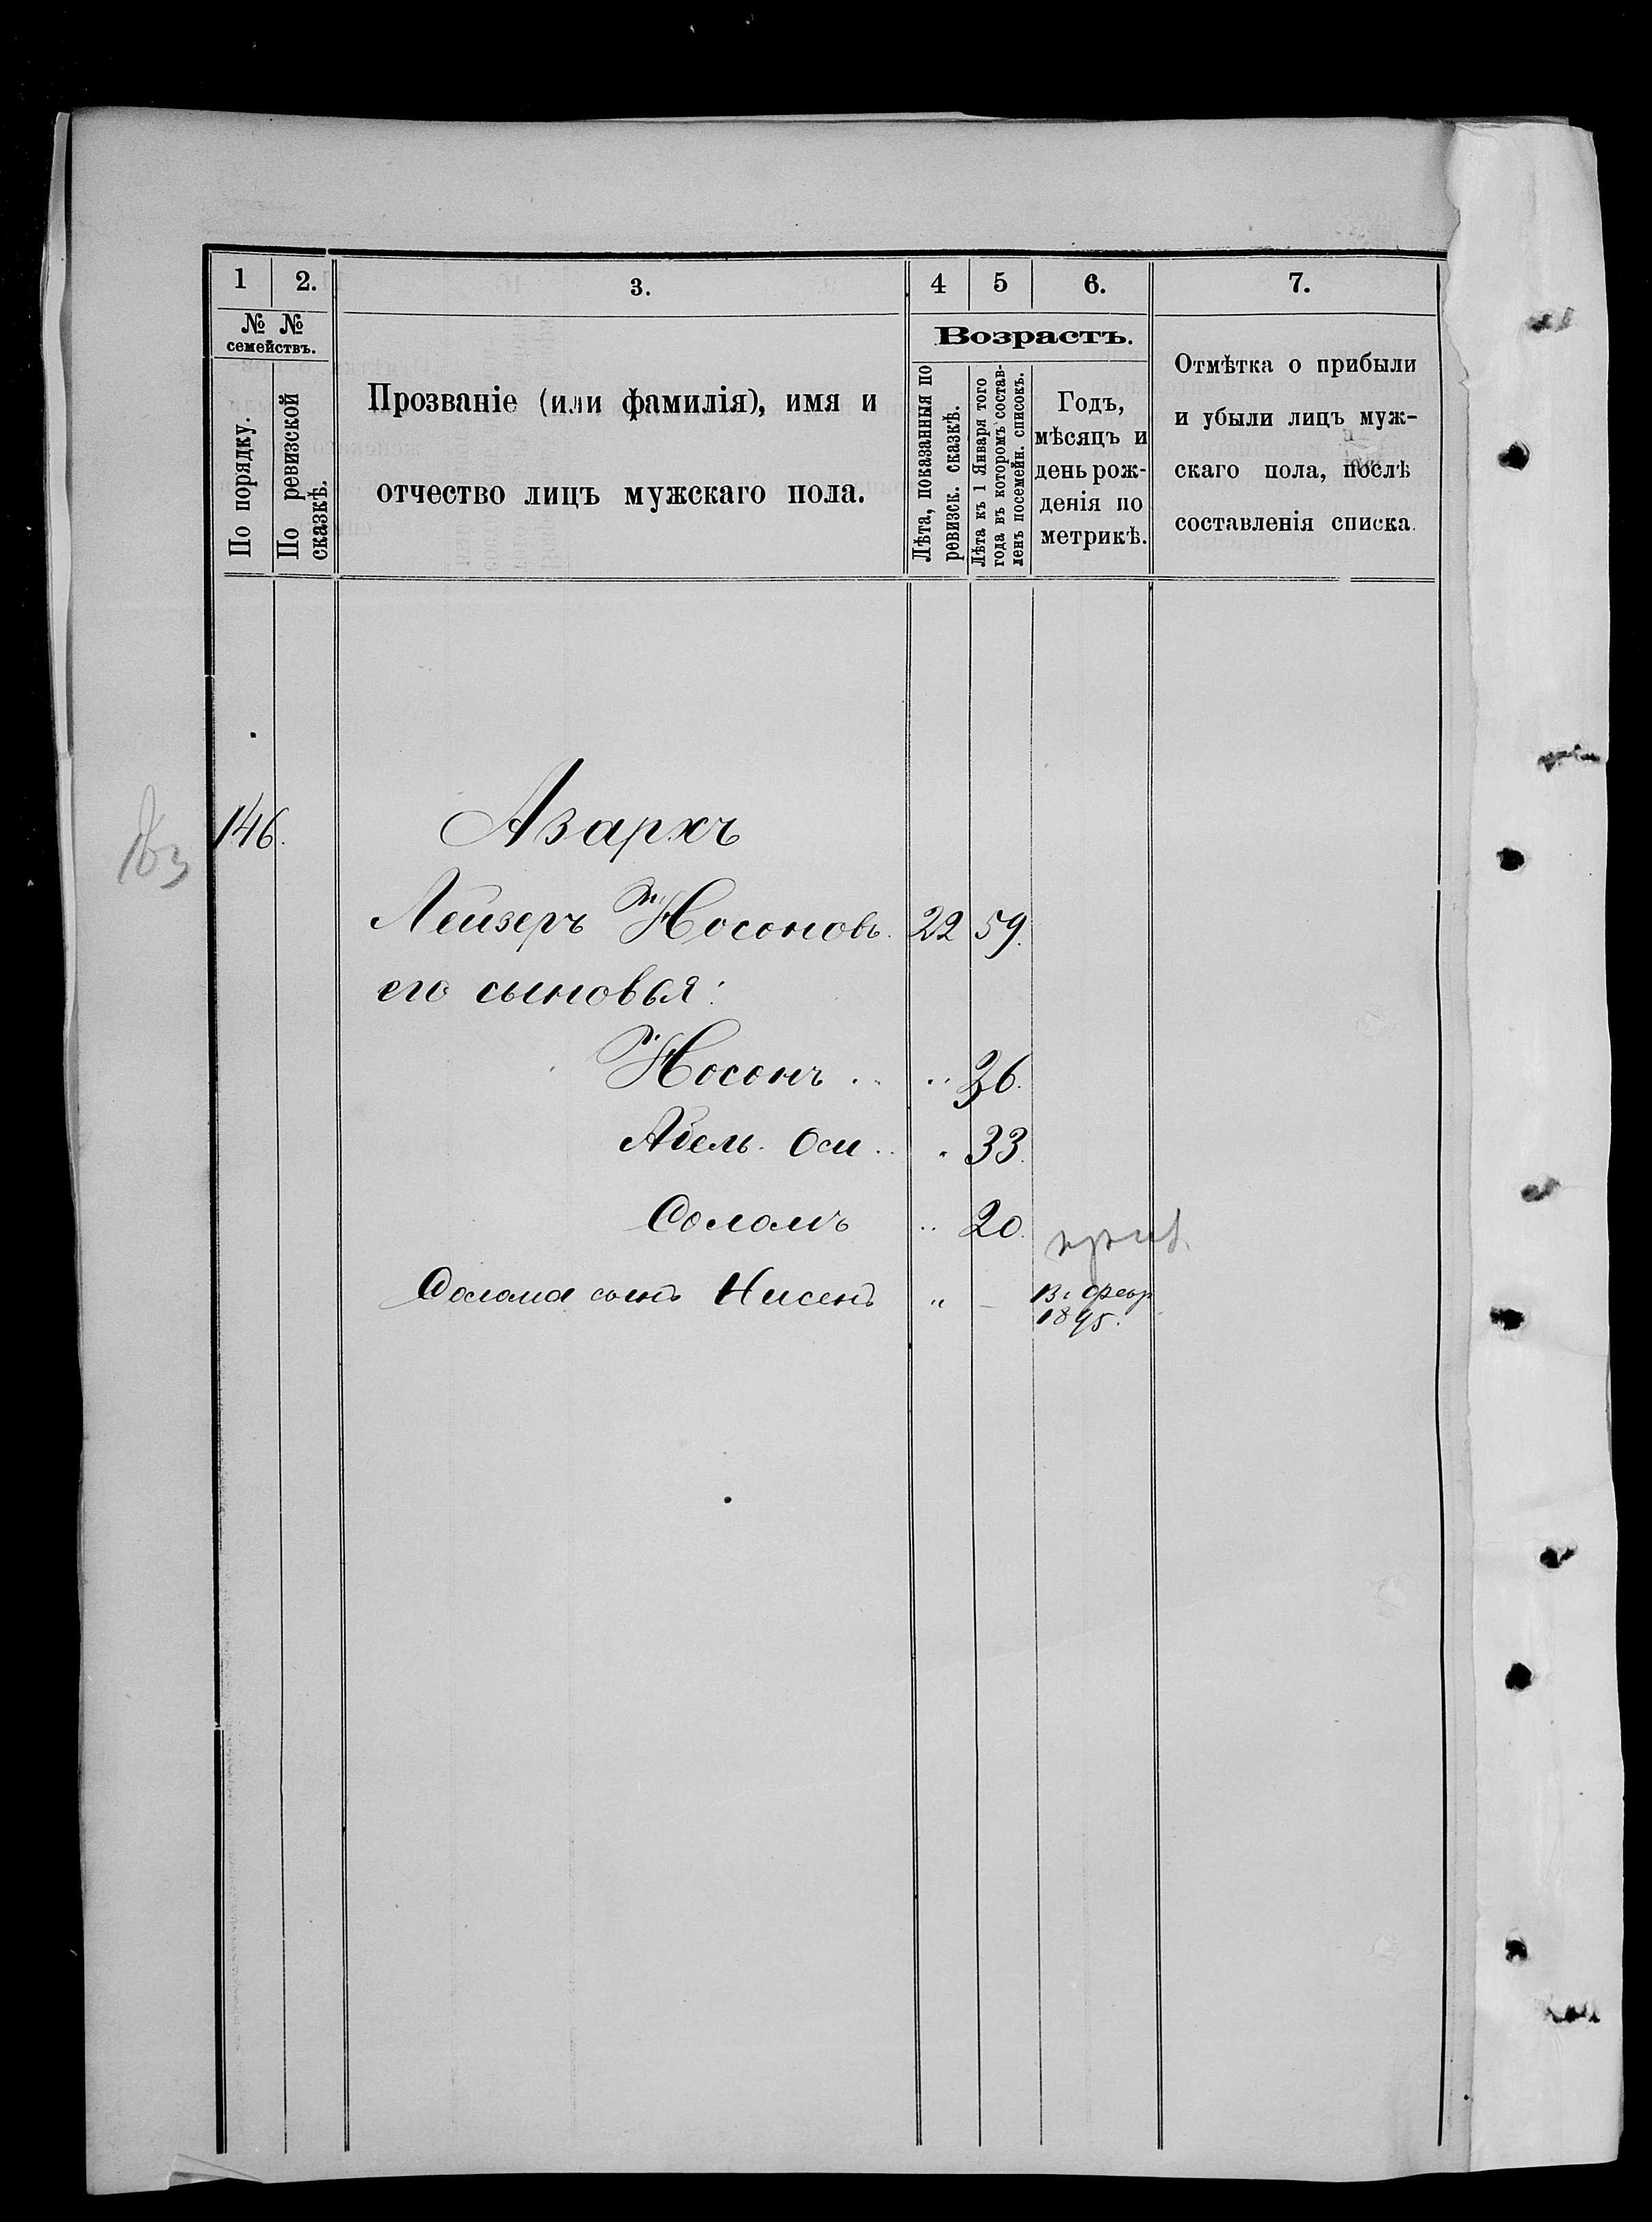 1 2. 3. 4 5 6. 7.
№ №
семействъ.
По порядку.
По ревизской
сказкѣ.
Прозваніе (или фамилія), имя и
отчество лицъ мужскаго пола.
Возрастъ.
Лѣта, показанныя по
ревизск. сказкѣ.
Лѣта къ 1 Января того
года въ которомъ состав-
ленъ посемейн. списокъ.
Годъ,
мѣсяцъ и
день рож-
денія по
метрикѣ.
Отмѣтка о прибыли
и убыли лицъ муж-
скаго пола, послѣ
составленія списка.
146. Азархъ
Лейзеръ Носоновъ. 22 59.
его сыновья:
Носонъ .. .. 36.
Абель. Оси .. . 33.
Соломъ .. 20.
Солома сынъ Нисенъ " – 13. февр
1895.